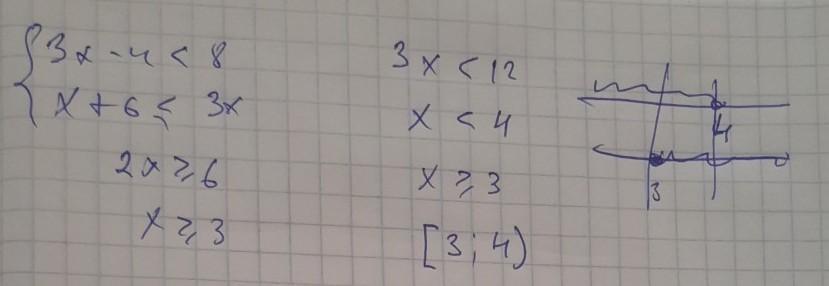 { 3x - 4 < 8
x + 6 ≤ 3x
2x ≥ 6
x ≥ 3
3x < 12
x < 4
x ≥ 3
[3; 4)
4
3